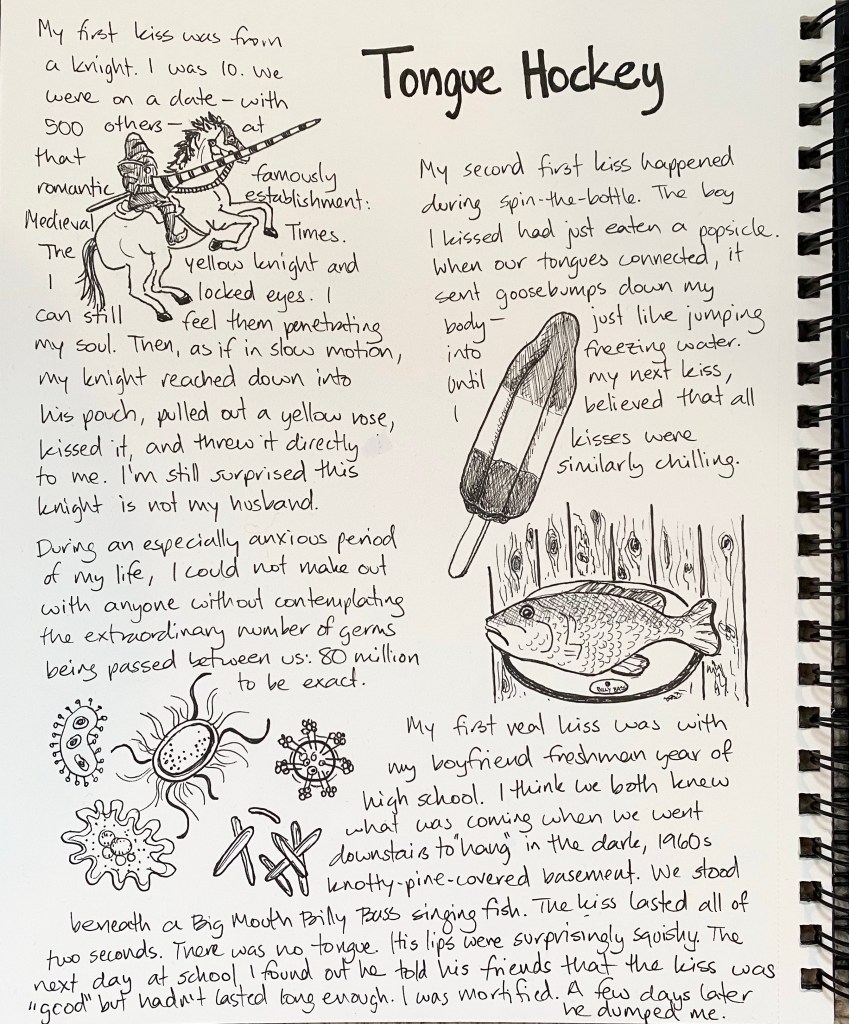 Tongue Hockey
My first kiss was from
a knight. I was 10. We
were on a date – with
500 others – at
that
romantic famously
establishment:
Medieval Times.
The yellow knight and
I locked eyes. I
can still feel them penetrating
my soul. Then, as if in slow motion,
my knight reached down into
his pouch, pulled out a yellow rose,
kissed it, and threw it directly
to me. I'm still surprised this
knight is not my husband.
My second first kiss happened
during spin-the-bottle. The boy
I kissed had just eaten a popsicle.
When our tongues connected, it
sent goosebumps down my
body – just like jumping
into freezing water.
Until my next kiss,
I believed that all
kisses were
similarly chilling.
During an especially anxious period
of my life, I could not make out
with anyone without contemplating
the extraordinary number of germs
being passed between us: 80 million
to be exact.
BILLY BASS
My first real kiss was with
my boyfriend freshman year of
high school. I think we both knew
what was coming when we went
downstairs to "hang" in the dark, 1960s
knotty-pine-covered basement. We stood
beneath a Big Mouth Billy Bass singing fish. The kiss lasted all of
two seconds. There was no tongue. His lips were surprisingly squishy. The
next day at school I found out he told his friends that the kiss was
"good" but hadn't lasted long enough. I was mortified. A few days later
he dumped me.